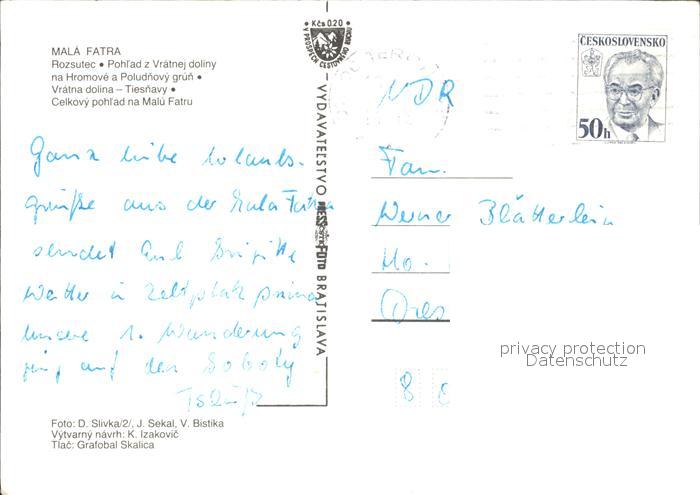 MALÁ FATRA
Rozsutec • Pohľad z Vrátnej doliny
na Hromové a Poludňový grúň •
Vrátna dolina – Tiesňavy •
Celkový pohľad na Malú Fatru
Kčs 0,20
V PROSPECH CESTOVNÉHO RUCHU
ČESKOSLOVENSKO
50h
VYDAVATEĽSTVO PRESSFOTO BRATISLAVA
NDR
Fam.
Werner Blätterlein
Dres
8
Ganz liebe Urlaubs-
grüße aus der Mala Fatra
sendet Euch Brigitte
Wetter u. Zeltplatz prima
Unsere 1. Wanderung
ging auf den Soboty
Tschüß
privacy protection
Datenschutz
Foto: D. Slivka/2/, J. Sekal, V. Bistika
Výtvarný návrh: K. Izakovič
Tlač: Grafobal Skalica